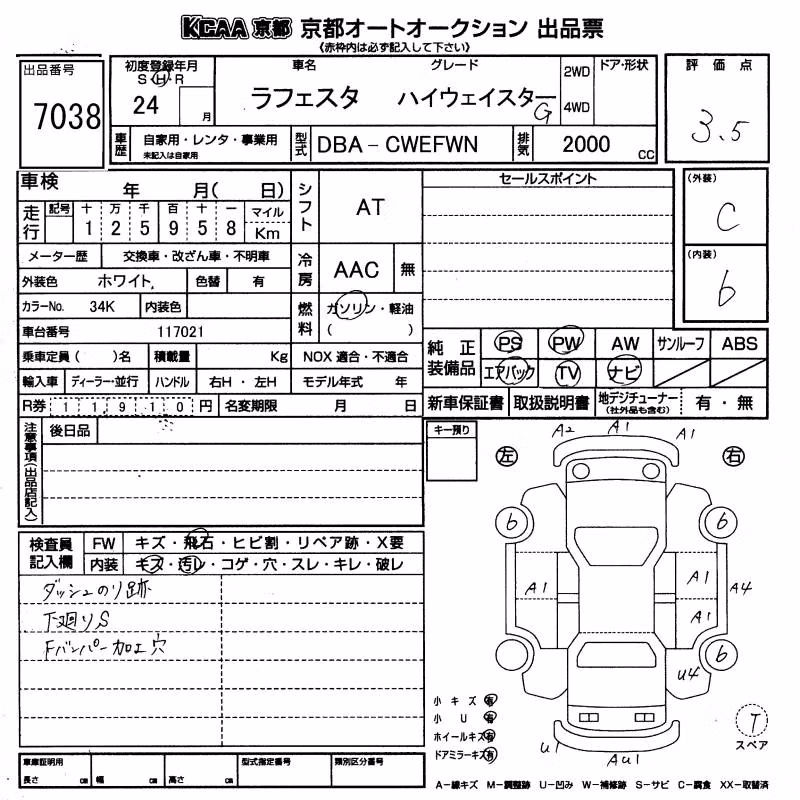 KCAA 京都 京都オートオークション 出品票
《赤枠内は必ず記入して下さい》
出品番号
7038
初度登録年月
S H R
24 月
車名 グレード
ラフェスタ ハイウェイスター G
2WD
4WD
ドア・形状
評価点
3.5
車歴 自家用・レンタ・事業用
未記入は自家用
型式 DBA-CWEFWN
排気 2000 cc
車検 年 月( 日)
走行 記号 十 万 千 百 十 一 マイル
1 2 5 9 5 8 Km
メーター歴 交換車・改ざん車・不明車
外装色 ホワイト 色替 有
カラーNo. 34K 内装色
車台番号 117021
乗車定員( )名 積載量 Kg
輸入車 ディーラー・並行 ハンドル 右H・左H
R券 11910 円 名変期限 月 日
シフト AT
冷房 AAC 無
燃料 ガソリン・軽油
( )
NOX 適合・不適合
モデル年式 年
セールスポイント
(外装)
C
(内装)
b
純正装備品 PS PW AW サンルーフ ABS
エアバック TV ナビ
新車保証書 取扱説明書 地デジチューナー(社外品も含む) 有・無
注意事項(出品店記入)
後日品
検査員記入欄
FW キズ・飛石・ヒビ割・リペア跡・X要
内装 キズ・汚レ・コゲ・穴・スレ・キレ・破レ
ダッシュのり跡
下廻りS
Fバンパー加工穴
キー預り
左 右
A2 A1 A1
b b
A1 A1 A4
A1
b
U4
小キズ 有
小U 有
ホイールキズ 有
ドアミラーキズ 有
U1 AU1
T
スペア
車庫証明用
長さ cm 幅 cm 高さ cm
型式指定番号
類別区分番号
A-線キズ M-調整跡 U-凹み W-補修跡 S-サビ C-腐食 XX-取替済